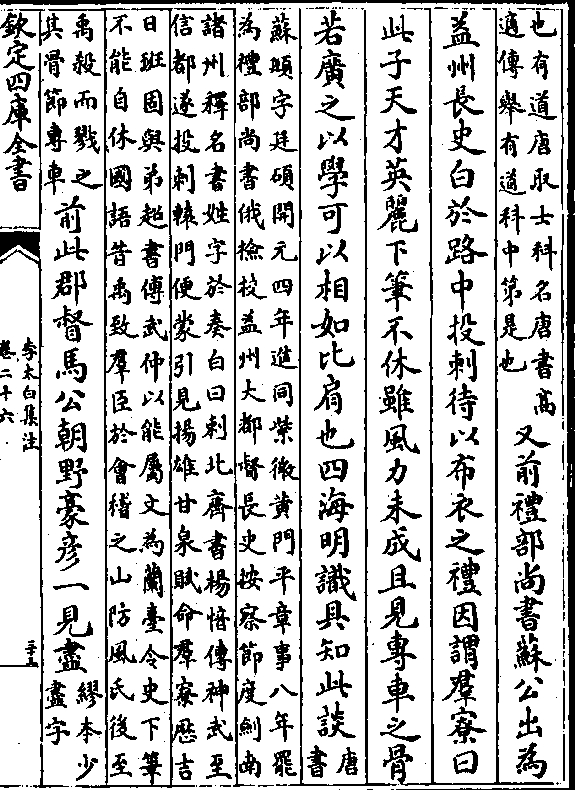 也有道唐取士科名唐書高
適傳舉有道科中第是也
又前禮部尚書蘇公出為
益州長史白於路中投刺待以布衣之禮因謂羣寮曰
此子天才英麗下筆不休雖風力未成且見專車之骨
若廣之以學可以相如比肩也四海明識具知此談
唐書
蘇頲字廷碩開元四年進同紫微黄門平章事八年罷
為禮部尚書俄撿校益州大都督長史按察節度劍南
諸州釋名書姓字於奏白曰刺北齊書楊愔傳神武至
信都遂投刺轅門便蒙引見揚雄甘泉賦命羣寮歴吉
日班固與弟超書傅武仲以能屬文為蘭臺令史下筆
不能自休國語昔禹致羣臣於會稽之山防風氏後至
禹殺而戮之
其骨節專車
前此郡督馬公朝野豪彦一見盡
繆本少
盡字
欽定四庫全書
李太白集注
卷二十六
二十五